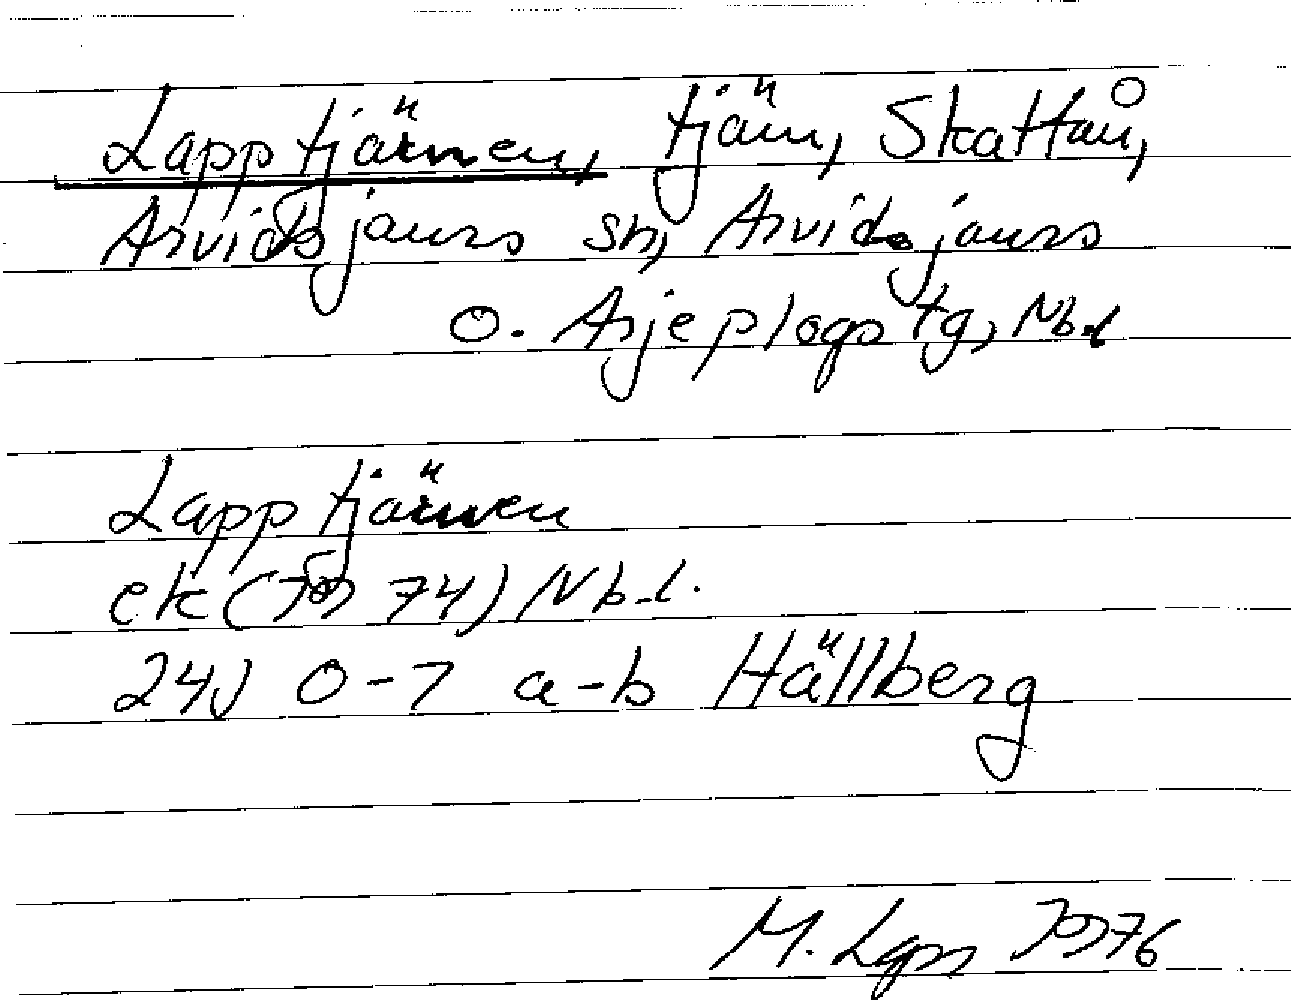 Lapptjärnen, tjärn, Skattån,
Arvidsjaurs sn, Arvidsjaurs
o. Arjeplogs tg, Nb.l
Lapptjärnen
ek ( 74) Nb.l.
24J 0-7 a-b Hällberg
M. 1976